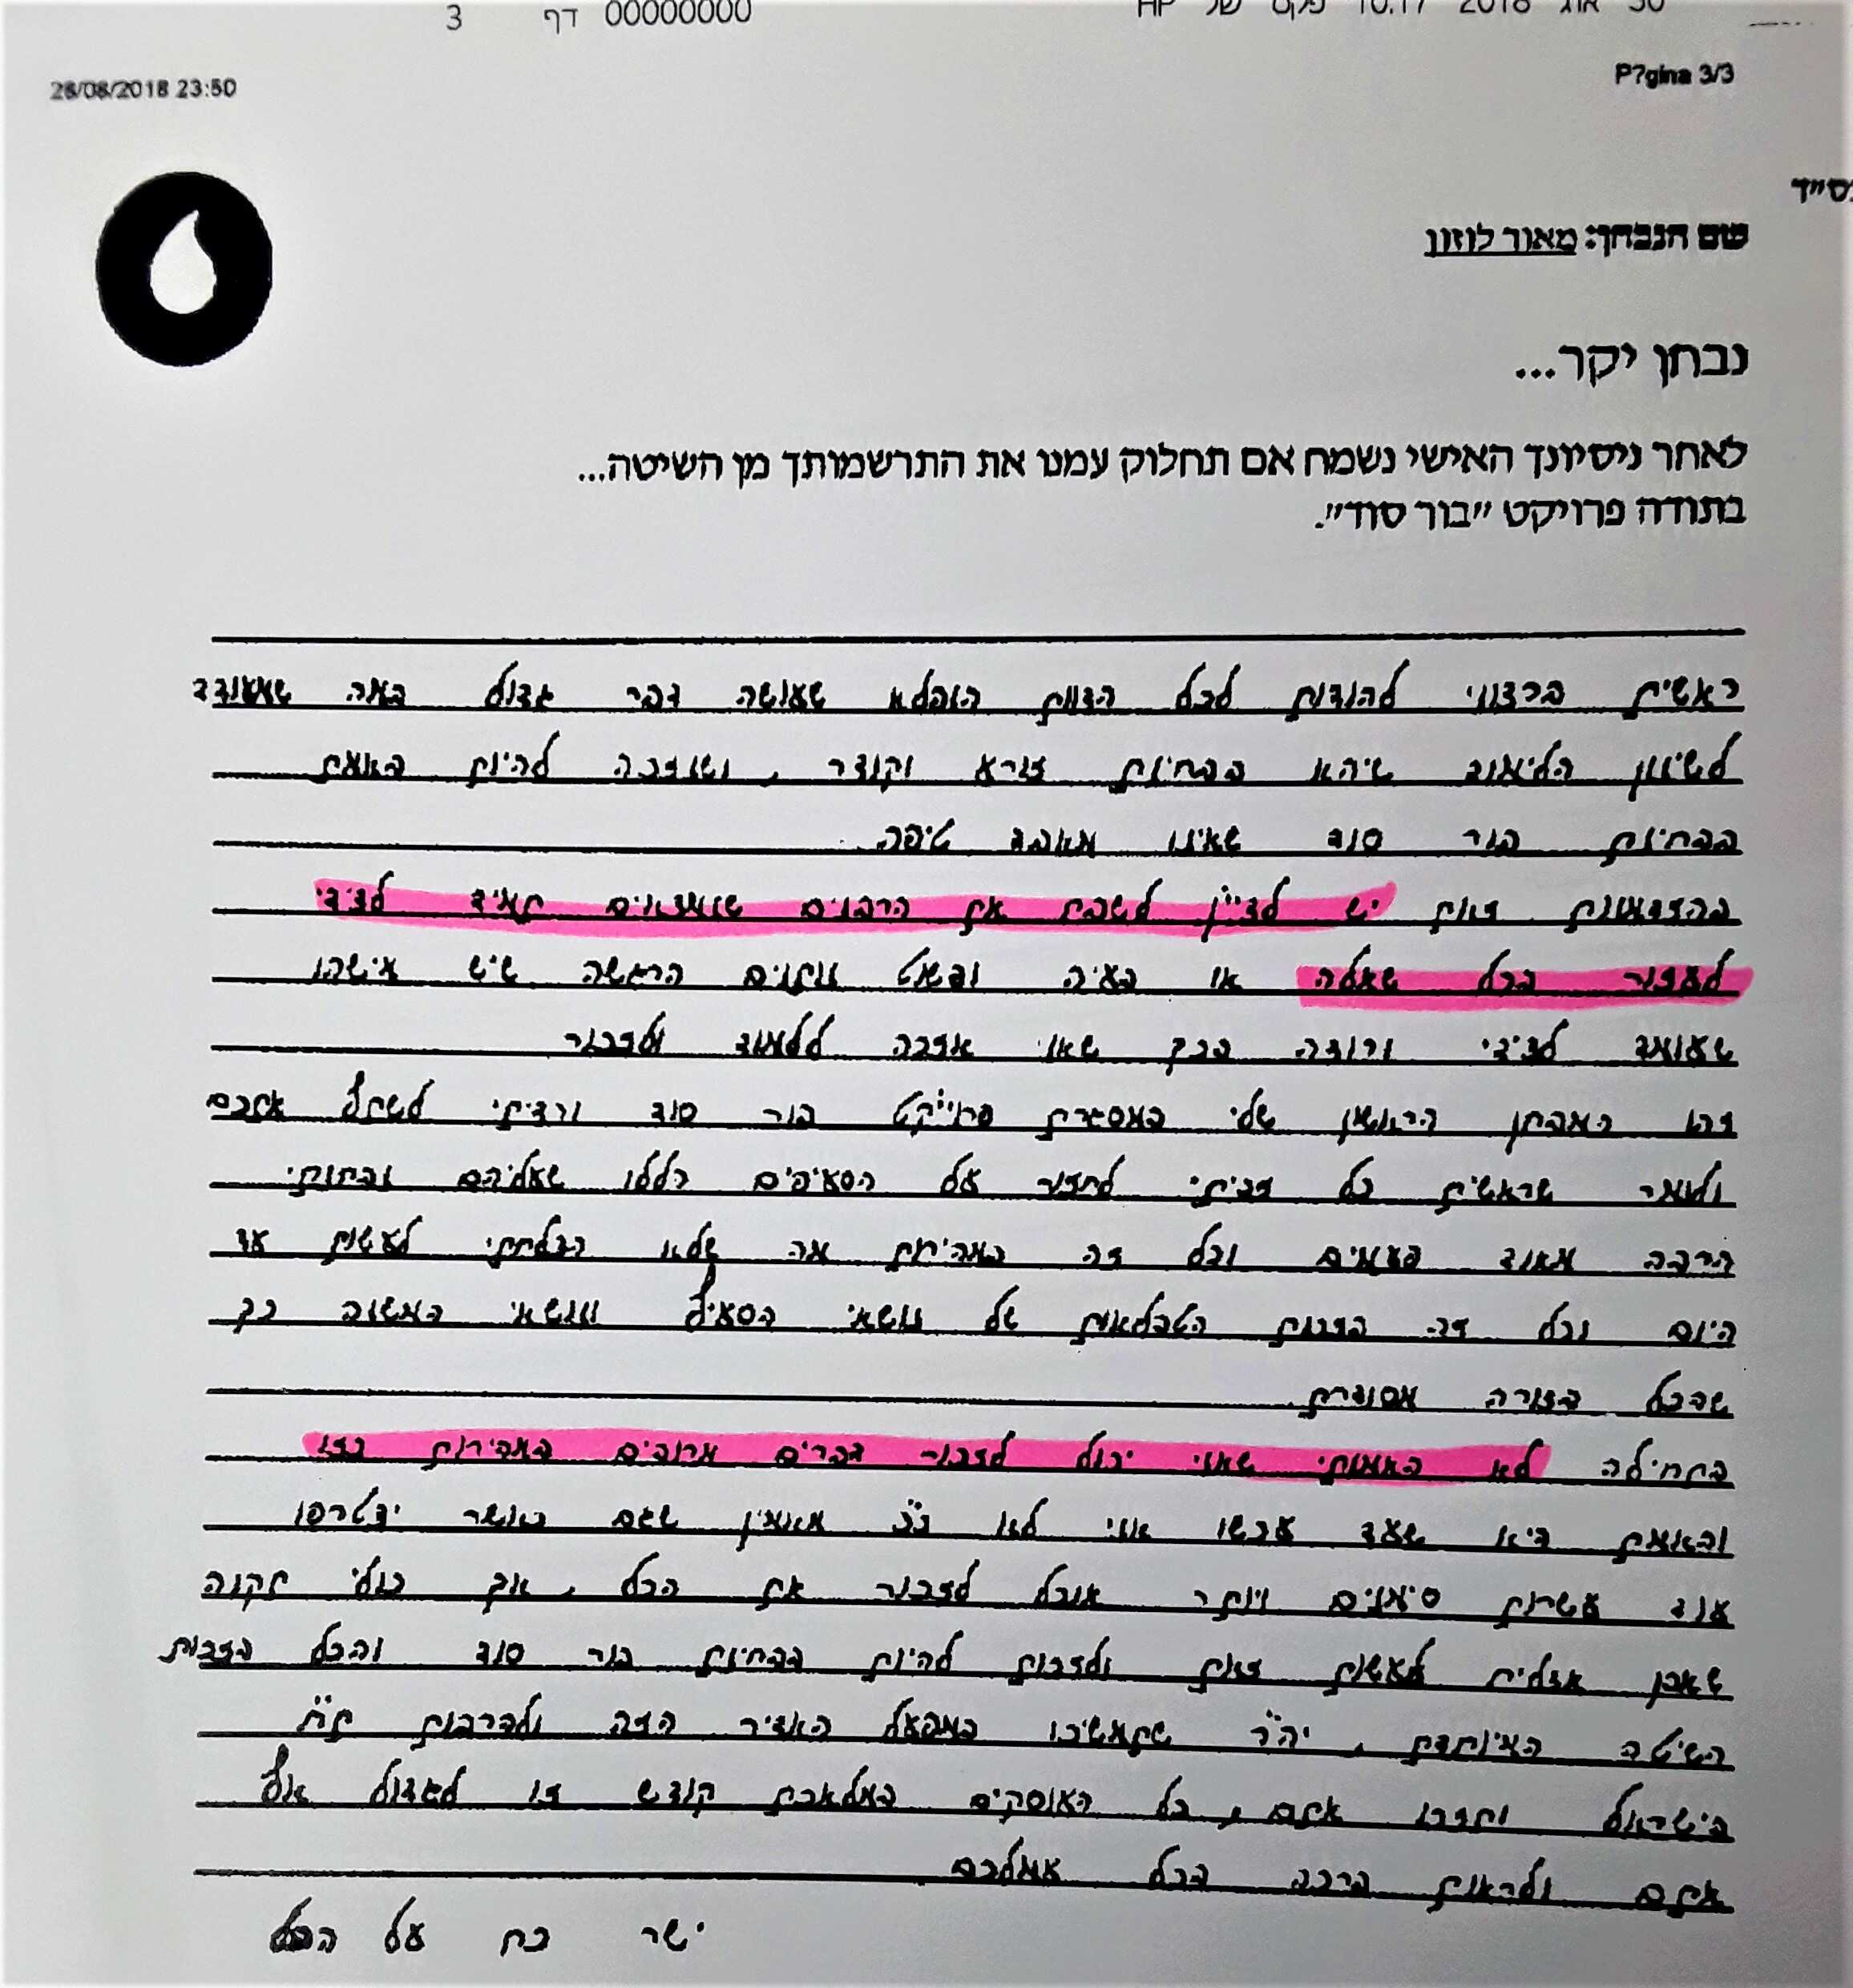 30 אוג 2018 10:17 פקס של HP 00000000 דף 3
28/08/2018 23:50 P?gina 3/3
בס״ד
שם הנבחן: מאור לוזון
נבחן יקר...
לאחר ניסיונך האישי נשמח אם תחלוק עמנו את התרשמותך מן השיטה...
בתודה פרויקט ״בור סוד״.
ראשית ברצוני להודות לכל הצוות הנפלא שעושה דבר גדול במה שמעודד
לשינון הלימוד שיהא בבחינת זורע וקוצר, ושנזכה להיות באמת
בבחינת בור סוד שאינו מאבד טיפה
בהזדמנות זאת יש לציין לשבח את הרבנים שנמצאים תמיד לצידי
לעזור בכל שאלה או בעיה ופשוט נותנים הרגשה שיש מישהו
שעומד לצידי ורוצה בכך שאני אזכה ללמוד ולזכור
זהו המבחן הראשון שלי במסגרת פרוייקט בור סוד ורציתי לשתף אתכם
ולומר שראשית כל זכיתי לחזור על הסעיפים הללו שעליהם נבחנתי
הרבה מאוד פעמים וכל זה במהירות מה שלא הצלחתי לעשות עד
היום וכל זה בזכות הטבלאות של נושאי הסעיף ונושאי המשנה כך
שהכל בצורה מסודרת
בתחילה לא האמנתי שאני יכול לזכור דברים מרובים במהירות כזו
והאמת היא שעד עכשיו אני לא כ״כ מאמין שגם כאשר יצטרפו
עוד עשרות סימנים ויותר אוכל לזכור את הכל, אך כולי תקוה
שאכן אצליח לעשות זאת ולזכות להיות בבחינת בור סוד והכל בזכות
השיטה המיוחדת, יה״ר שתמשיכו במפעל האדיר הזה ולהרבות ת״ת
בישראל ותזכו אתם, כל העוסקים במלאכת קודש זו לגדול אף
אתם ולראות ברכה בכל עמלכם
ישר כח על הכל